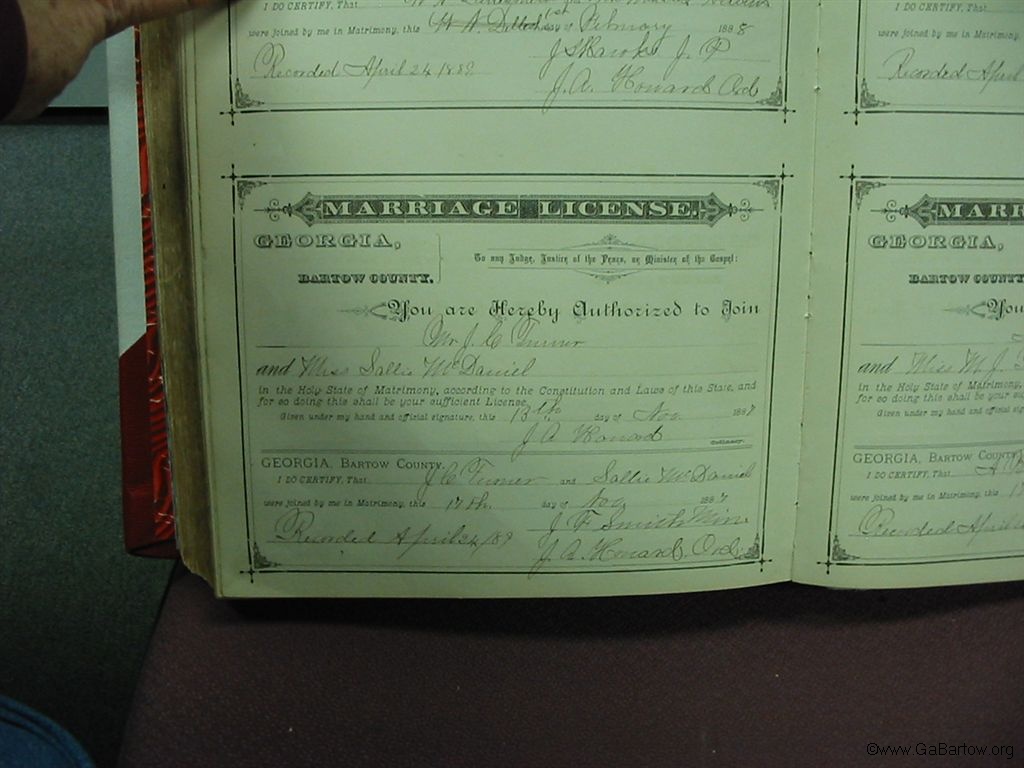 I DO CERTIFY, That
were joined by me in Matrimony, this 1st day of February 1888
J. P
Recorded April 24 1889
J. A. Howard Ord
were joined by me in Matrimony,
Recorded April
MARRIAGE LICENSE.
GEORGIA,
BARTOW COUNTY.
To any Judge, Justice of the Peace, or Minister of the Gospel:
You are Hereby Authorized to Join
Mr J. C Turner
and Miss Sallie McDaniel
in the Holy State of Matrimony, according to the Constitution and Laws of this State, and
for so doing this shall be your sufficient License.
Given under my hand and official signature, this 13th day of Nov 1887
J A Howard Ordinary.
GEORGIA, BARTOW COUNTY.
I DO CERTIFY, That J C Turner and Sallie McDaniel
were joined by me in Matrimony, this 17th day of Nov 1887
J F Smith Min
Recorded April 24/89
J. A. Howard, Ord
MARR
GEORGIA,
BARTOW COUNTY
You
and Miss M. J.
in the Holy State of Matrimony,
for so doing this shall be your
Given under my hand and official
GEORGIA, BARTOW COUNTY
I DO CERTIFY, That
were joined by me in Matrimony, this
Recorded April
©www.GaBartow.org